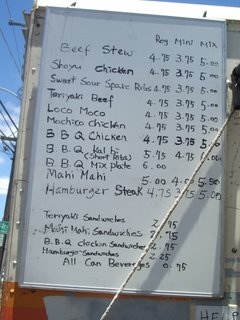 Reg Mini Mix
Beef Stew 4.75 3.75 5.00
Shoyu Chicken 4.75 3.75 5.00
Sweet Sour Spare Ribs 4.75 3.75 5.00
Teriyaki Beef 4.75 3.75 5.00
Loco Moco 4.75 3.75 5.00
Mochiko chicken 4.75 3.75 5.00
B.B.Q Chicken 4.75 3.75 5.00
B.B.Q Kal bi 5.75 4.75
(Short Ribs)
B.B.Q Mix plate 6.00
Mahi Mahi 5.00 4.00 5.50
Hamburger Steak 4.75 3.75 5.00
Teriyaki Sandwiches
Mahi Mahi Sandwiches
B.B.Q chicken Sandwiches 2.75
Hamburger Sandwiches 2.25
All Can Beverages 0.75
HELP